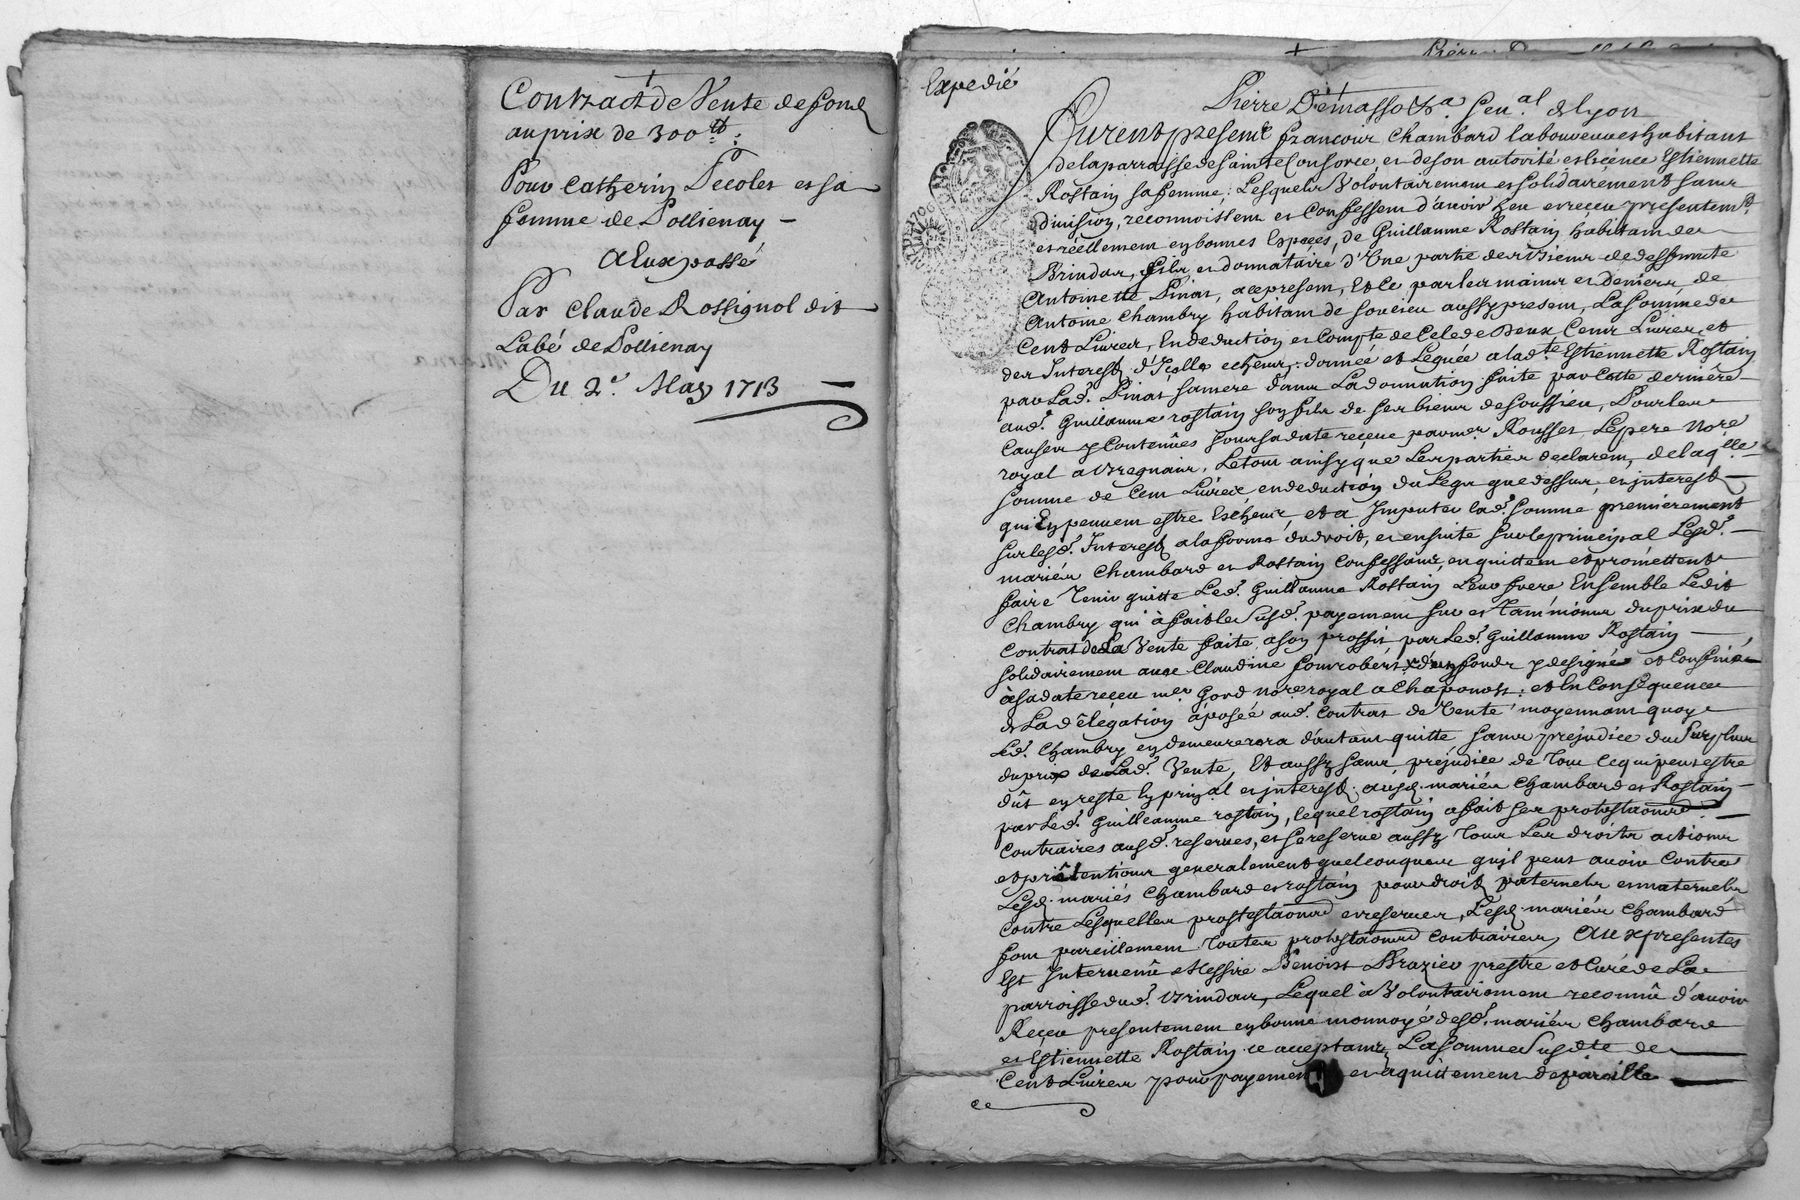 Contract de Vente de fond
au prix de 300 ₶:
Pour Catherin Pecolet et sa
femme de Pollienay –
a Eux passé
Par Claude Rossignol dit
Labé de Pollienay
Du 2e. May 1713
Expedié
Pierre Demasso
gen.al de lyon
Furent presents françois Chambard laboureur et habitant
de la parroisse de Sainte Consorce, et de son autorité et licence Estiennette
Rostain sa femme; Lesquels Volontairement et solidairement sans
division, reconnoissent et Confessent d'avoir heu et receu presentemt.
et réellement en bonnes Espèces, de Guillaume Rostain habitant de
Brindas, fils et donnataire d'Une partie des Biens de deffuncte
Antoinette Pinat, a ce present, Et ce par les mains et deniers de
Antoine Chambry habitant de soucieu aussy present, La somme de
Cent Livres, En deduction et Compte de Cele de Deux Cent Livres, et
des Interests d'Icelle echeus; donnée et Leguée a lad.te Estiennette Rostain
par Lad. Pinat sa mere dans La donnation faite par Cette derniere
aud. Guillaume rostain son fils de ses biens de soussieu, Pour les
Causes y Contenûes sous sa date receue par mer. Rousset, Le pere Nore
royal a Vregnair, Le tout ainsy que Les parties declarent, de laqlle
Somme de Cent Livres, en deduction du Legs que dessus, et interests
qui En peuvent estre Escheus, et a Imputer lad. somme premierement
sur lesd. Interests a la forme du droit, et ensuite sur le principal Lesd.
mariés Chambard et Rostain Confessans, en quittent et promettent
faire Tenir quitte Led. Guillaume Rostain Leur frere Ensemble Ledit
Chambry qui à fait le Susd. payement sur et Tant moins du prix du
Contrat de La Vente faite a son proffit par Led. Guillaume Rostain
Solidairement avec Claudine fonrobert d'un fonds y designé et Confiné
à sa date receu mer Gord nore royal a Chaponost: et En Consequence
de La dèlégation àposée aud. Contrat de Vente moyennant quoy
Led. Chambry en demeurerera d'autant quitte sans prejudice du Surplus
du prix de Lad. Vente, Et aussy sans préjudice de Tout ce qui peut estre
dût en reste En prinal et interests ausd. mariés Chambard et Rostain
par Led. Guilleaume rostain, lequel rostain a fait ses protestaons
Contraires ausd. reserves, et se reserve aussy Tous Les droits actions
et prètentions generalement quelconques qu'il peut avoir Contre
Lesd. mariés Chambard et rostain pour droits paternels et maternels
Contre Lesquelles prostestaons et reserves, Lesd. mariés Chambard
font pareillement Toutes protestaons Contraires, Aux presentes
Est Intervenû Messire Benoist Brazier prestre et Curé de La
parroisse dud. Brindas, Lequel à Volontairement reconnû d'avoir
Receu presentement en bonne monnoye desd. mariés Chambard
et Estiennette Rostain ce acceptans, La somme Susdte de
Cent Livres pour payement et aquittement de pareille
ce